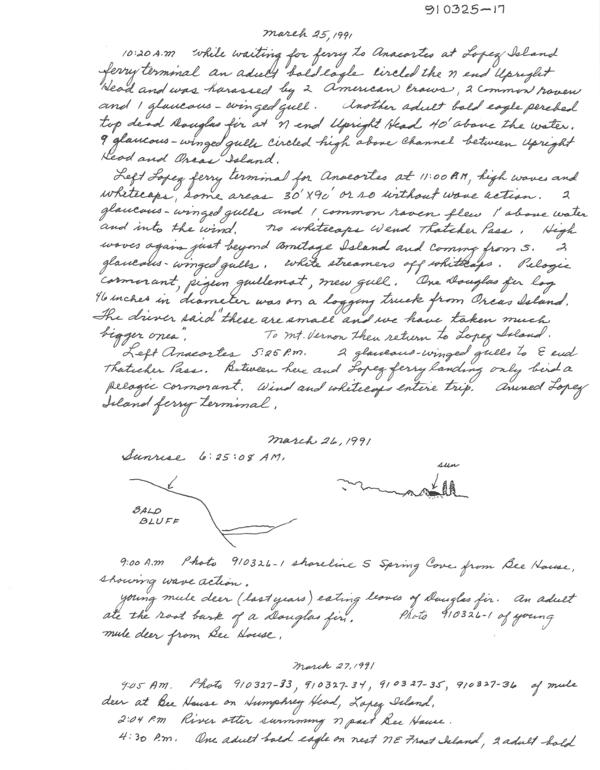 910325-17
March 25, 1991
10:20 A.M While waiting for ferry to Anacortes at Lopez Island
ferry terminal an adult bald eagle circled the N end Upright
Head and was harassed by 2 American crows, 2 common raven
and 1 glaucous-winged gull. Another adult bald eagle perched
top dead Douglas fir at N end Upright Head 40' above the water.
9 glaucous-winged gulls circled high above channel between Upright
Head and Orcas Island.
Left Lopez ferry terminal for Anacortes at 11:00 AM, high waves and
whitecaps, some areas 30' X 90' or so without wave action. 2
glaucous-winged gulls and 1 common raven flew 1' above water
and into the wind. No whitecaps W end Thatcher Pass. High
waves again just beyond Armitage Island and coming from S. 2
glaucous-winged gulls. White streamers off whitecaps. Pelagic
cormorant, pigeon guillemot, mew gull. One Douglas fir log
46 inches in diameter was on a logging truck from Orcas Island.
The driver said "these are small and we have taken much
bigger ones". To Mt. Vernon then return to Lopez Island.
Left Anacortes 5:25 P.M. 2 glaucous-winged gulls to E end
Thatcher Pass. Between here and Lopez ferry landing only bird a
pelagic cormorant. Wind and whitecaps entire trip. Arrived Lopez
Island ferry terminal.
March 26, 1991
Sunrise 6:25:08 AM.
sun
BALD
BLUFF
9:00 A.M Photo 910326-1 shoreline S Spring Cove from Bee House,
showing wave action.
young mule deer (last years) eating leaves of Douglas fir. An adult
ate the root bark of a Douglas fir. Photo 910326-1 of young
mule deer from Bee House.
March 27, 1991
9:05 AM. Photo 910327-33, 910327-34, 910327-35, 910327-36 of mule
deer at Bee House on Humphrey Head, Lopez Island.
2:04 PM River otter swimming N past Bee House.
4:30 P.M. One adult bald eagle on nest NE Frost Island, 2 adult bald